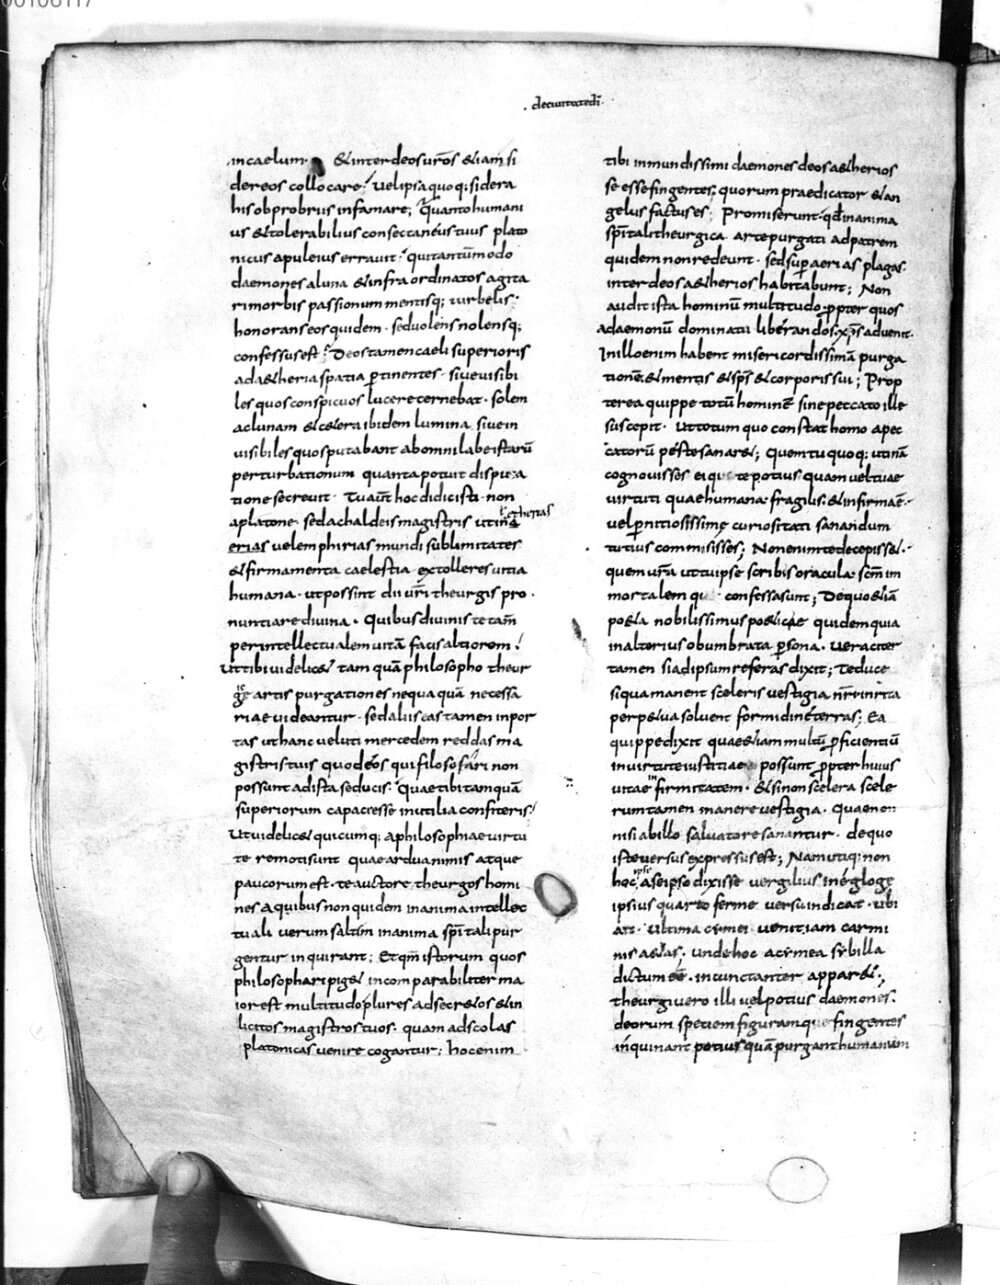 00106117
· decuitatedi ·
incaelum · &interdeosur̄os &iamsi
dereos collocare? uelipsaquoq; sidera
hisobprobriis infamare; Quantohumani
us &tolerabilius consectaneustuus plato
nicus apuleius errauit? quitantūmodo
daemones aluna &infra ordinatos agita
rimorbis passionum mentisq; turbelis ·
honoranseosquidem · seduolensnolensq;
confessusest? Deostamencaeli superioris
ada&heria spatia ꝑtinentes · siueuisibi
les quosconspicuos lucerecernebat · solem
aclunam &c&era ibidem lumina siuein
uisibiles quosputabant abomnilabeistarū
perturbationum quantapotuit disputa
tione secreuit · Tuaūt hocdidicisti · non
aplatone · sedachaldeis magistris utinę
ł etherias
erias uelemphirias mundi sublimitates
&firmamenta caelestia extolleres uitia
humana · utpossint dii ur̄i theurgis pro ·
nuntiare diuina · Quibus diuinis te tam̄
perintellectualemuitā facis altiorem?
Uttibi uidelic& tam quā philosopho theur
gicę artis purgationes nequaquā necessa
riae uideantur · sedaliis eas tamen inpor
tas uthanc ueluti mercedem reddas ma
gistris tuis quodeos qui filosofari non
possunt adista seducis · quaetibitamquā
superiorum capacięsse inutilia confiteris?
Utuidelic& quicumq; aphilosophiae uirtu
te remotisunt quae arduanimis atque
paucorum est · te auctore theurgos homi
nes a quibus non quidem inanima intellec
tuali uerum saltim inanima sp̄itali pur
gentur inquirant; Etqm̄ istorum quos
philosophari pig& incomparabiliter ma
ior est multitudo plures adsecr&os &in
licitos magistros tuos · quam adscolas
platonicas uenire cogantur; hocenim
tibi inmundissimi daemones deos a&herios
se esse fingentes; quorum praedicator &an
gelus factuses; Promiserunt · qđ inanima
sp̄itali theurgica arte purgati adpatrem
quidem nonredeunt · sed suꝑ aerias plagas
interdeos a&herios habitabunt; Non
audit ista hominū multitudo ꝓpter quos
adaemonū dominatu liberandos xp̄s aduenit ·
Inillo enim habent misericordissimā purga
tionē · &mentis &sp̄s &corporis sui; Prop
terea quippe totū hominē sine peccato ille
suscepit · Ut totum quo constat homo apec
catorū peste sanar&; Quem tu quoq; utinā
cognouisses eique te potius quam uel tuae
uirtuti quae humana fragilis &infirma ē ·
uel ꝑnitiosissimę curiositati sanandum
tutius commisisses; Non enim te decepiss& ·
quem ur̄a ut tu ipse scribis oracula · sc̄m in
mortalemque confessa sunt; De quo &iā
po&a nobilissimus po&icae quidem quia
inalterius obumbrata ꝑsona · ueraciter
tamen si adipsum referas dixit; Te duce
siqua manent sceleris uestigia nr̄i · inrita
perp&ua soluent formidine terras; Ea
quippe dixit quae &iam multū ꝓficientiū
inuirtute iustitiae possunt ꝓpter huius
uitae infirmitatem · &si non scelera scele
rum tamen manere uestigia · Quae non
nisi ab illo saluatore sanantur · de quo
iste uersus expressus est; Nam utiq; non
ipse
hoc, aseipso dixisse uergilius in ęglogę
ipsius quarto ferme uersu indicat · ubi
ait · Ultima cymei uenit iam carmi
nis a&as · unde hoc acymea sybilla
dictum ēē · incunctanter appar& ·;
theurgi uero illi uel potius daemones ·
deorum speciem figuramque fingentes
inquinant potius quā purgant humanum